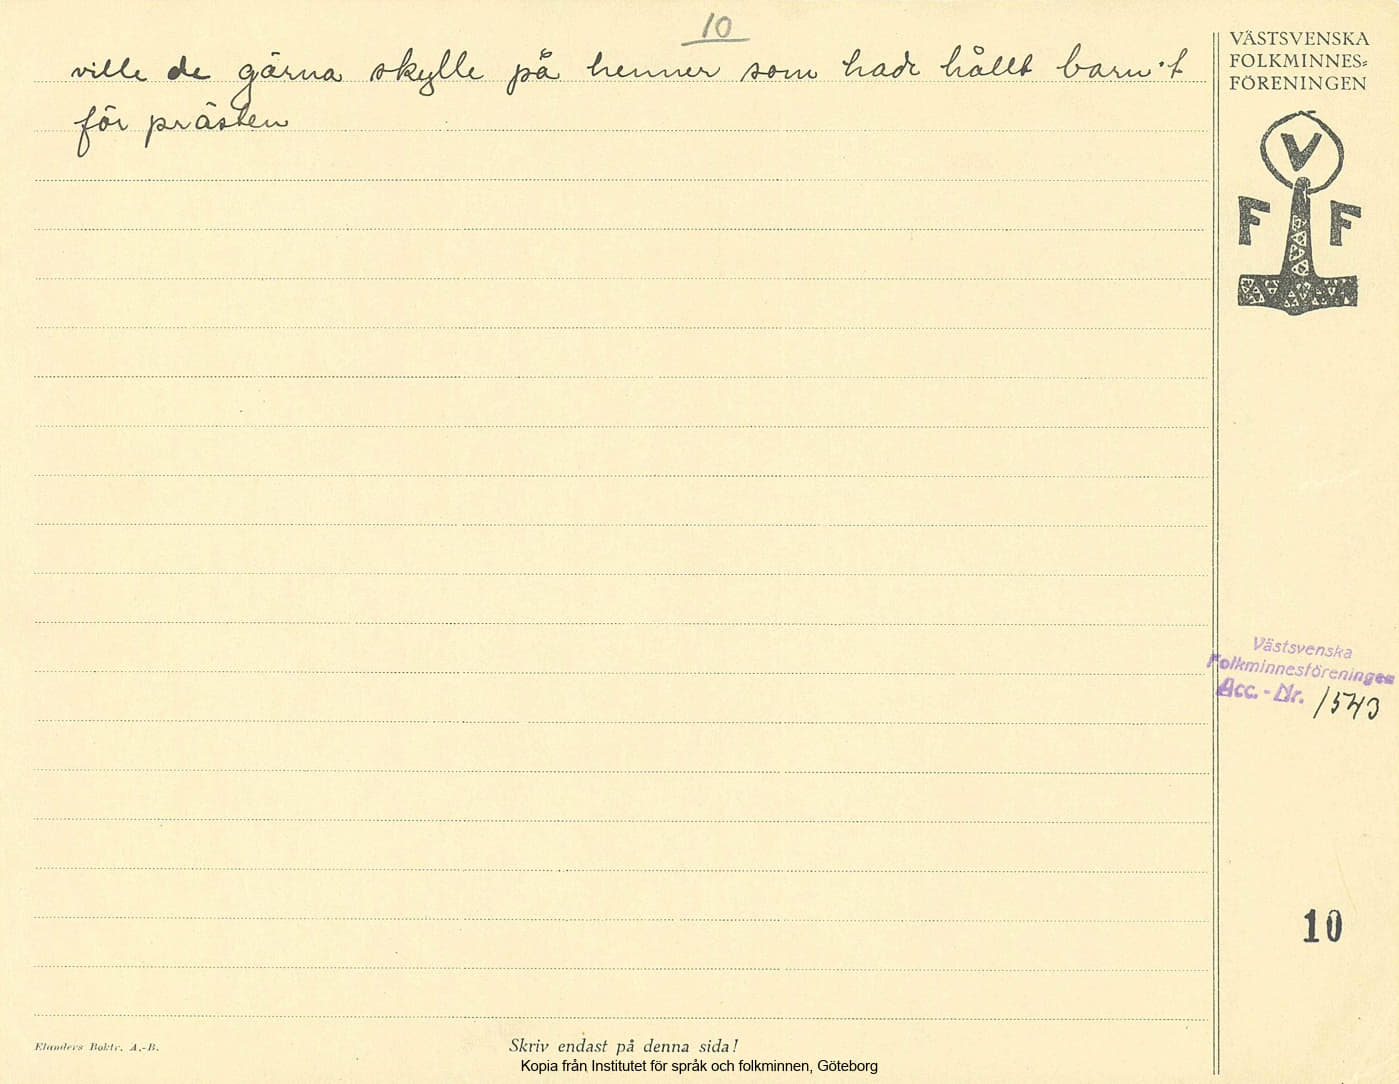 10
ville de gärna skylle på henner som hade hållt barn't
för prästen
VÄSTSVENSKA
FOLKMINNES=
FÖRENINGEN
V
F F
Västsvenska
Folkminnesföreningen
Acc.-Nr. 1543
10
Elanders Boktr. A.-B.
Skriv endast på denna sida!
Kopia från Institutet för språk och folkminnen, Göteborg